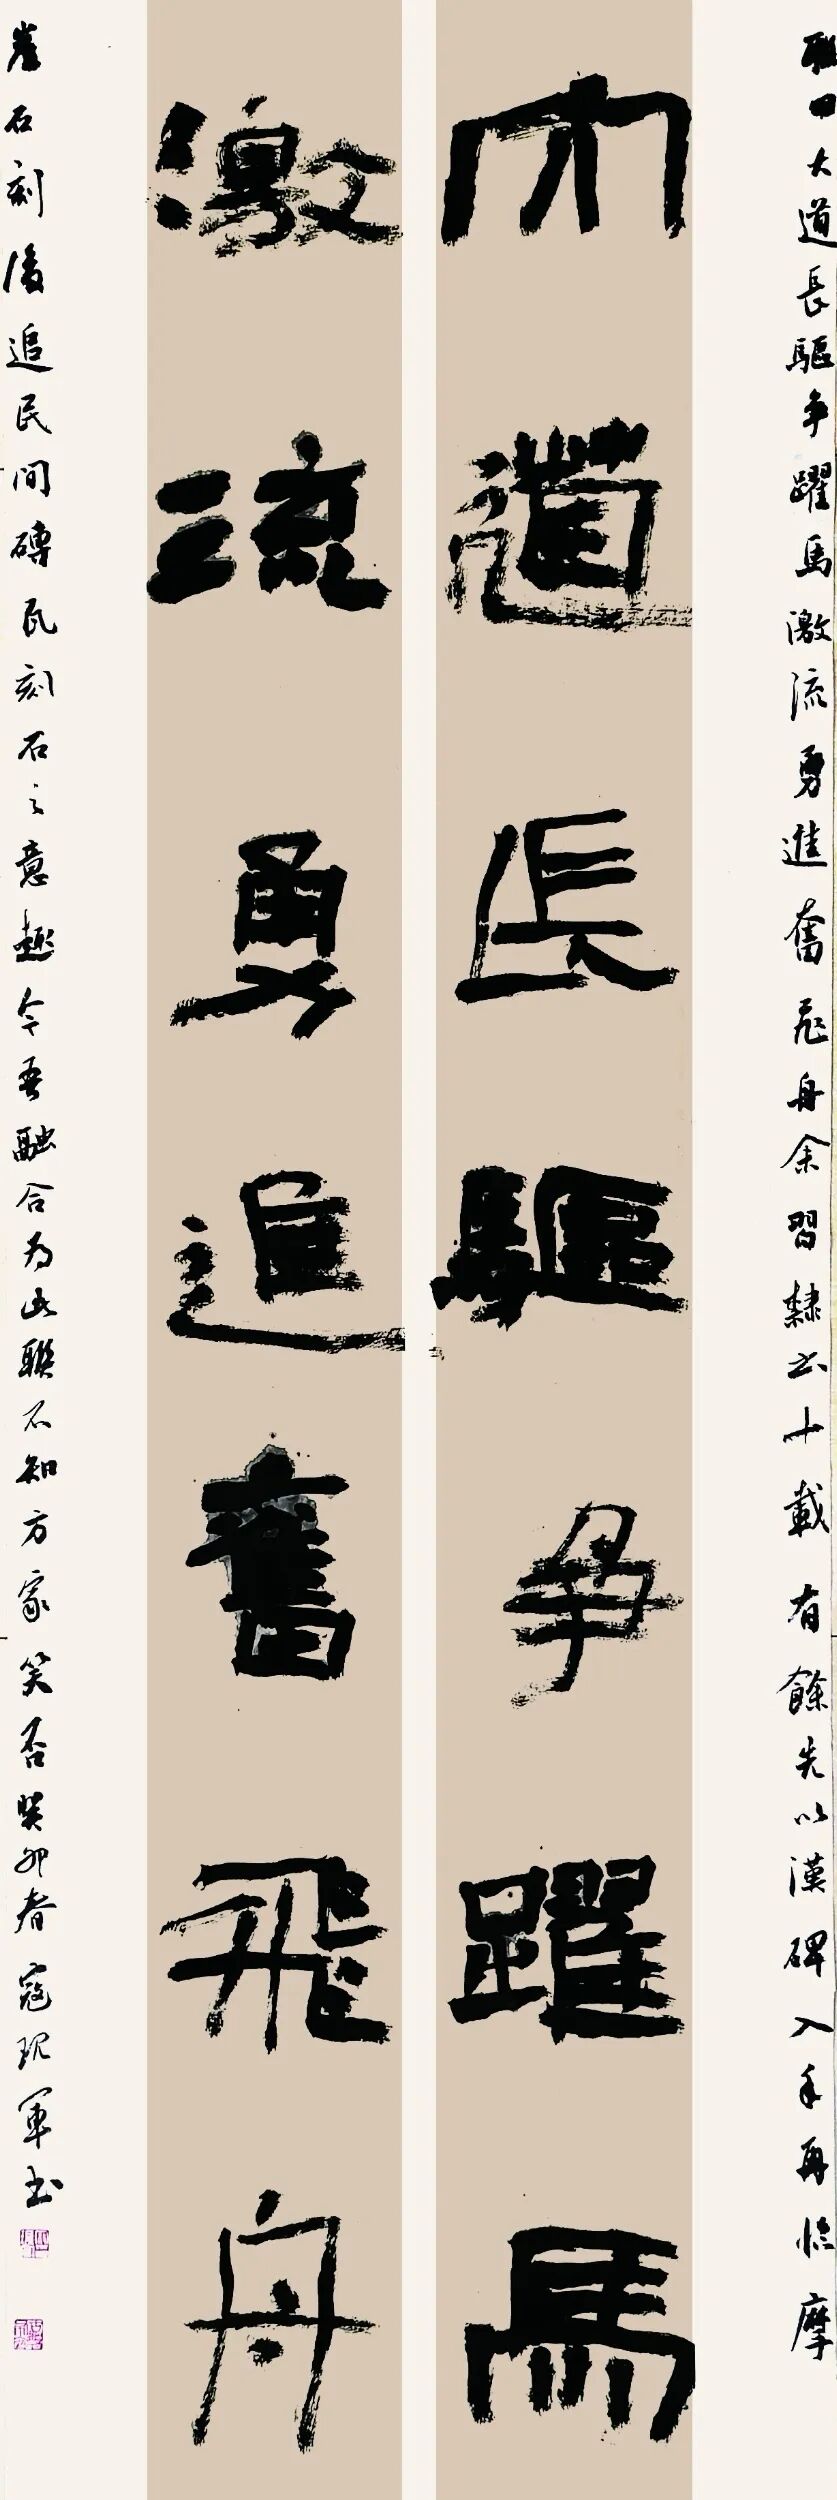 聯曰大道長驅争躍馬激流勇進奮飛舟余習隸书十載有餘先以漢碑入手再临摩
大道長驅争躍馬
激流勇進奮飛舟
崖石刻後追民間磚瓦刻石之意趣今吾融合为此聯不知方家笑否癸卯春寇现軍书